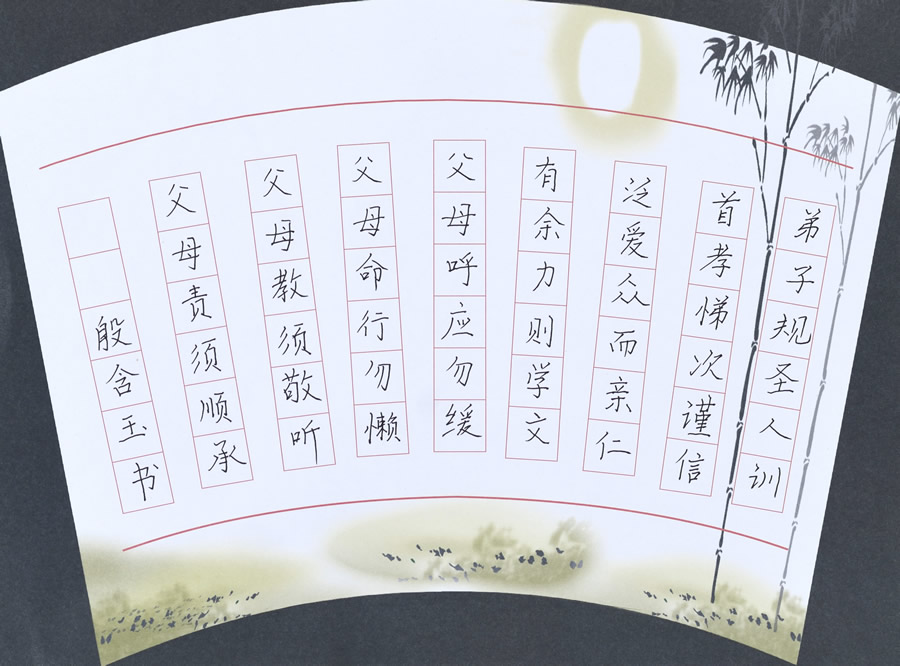 弟子规圣人训
首孝悌次谨信
泛爱众而亲仁
有余力则学文
父母呼应勿缓
父母命行勿懒
父母教须敬听
父母责须顺承
殷含玉书